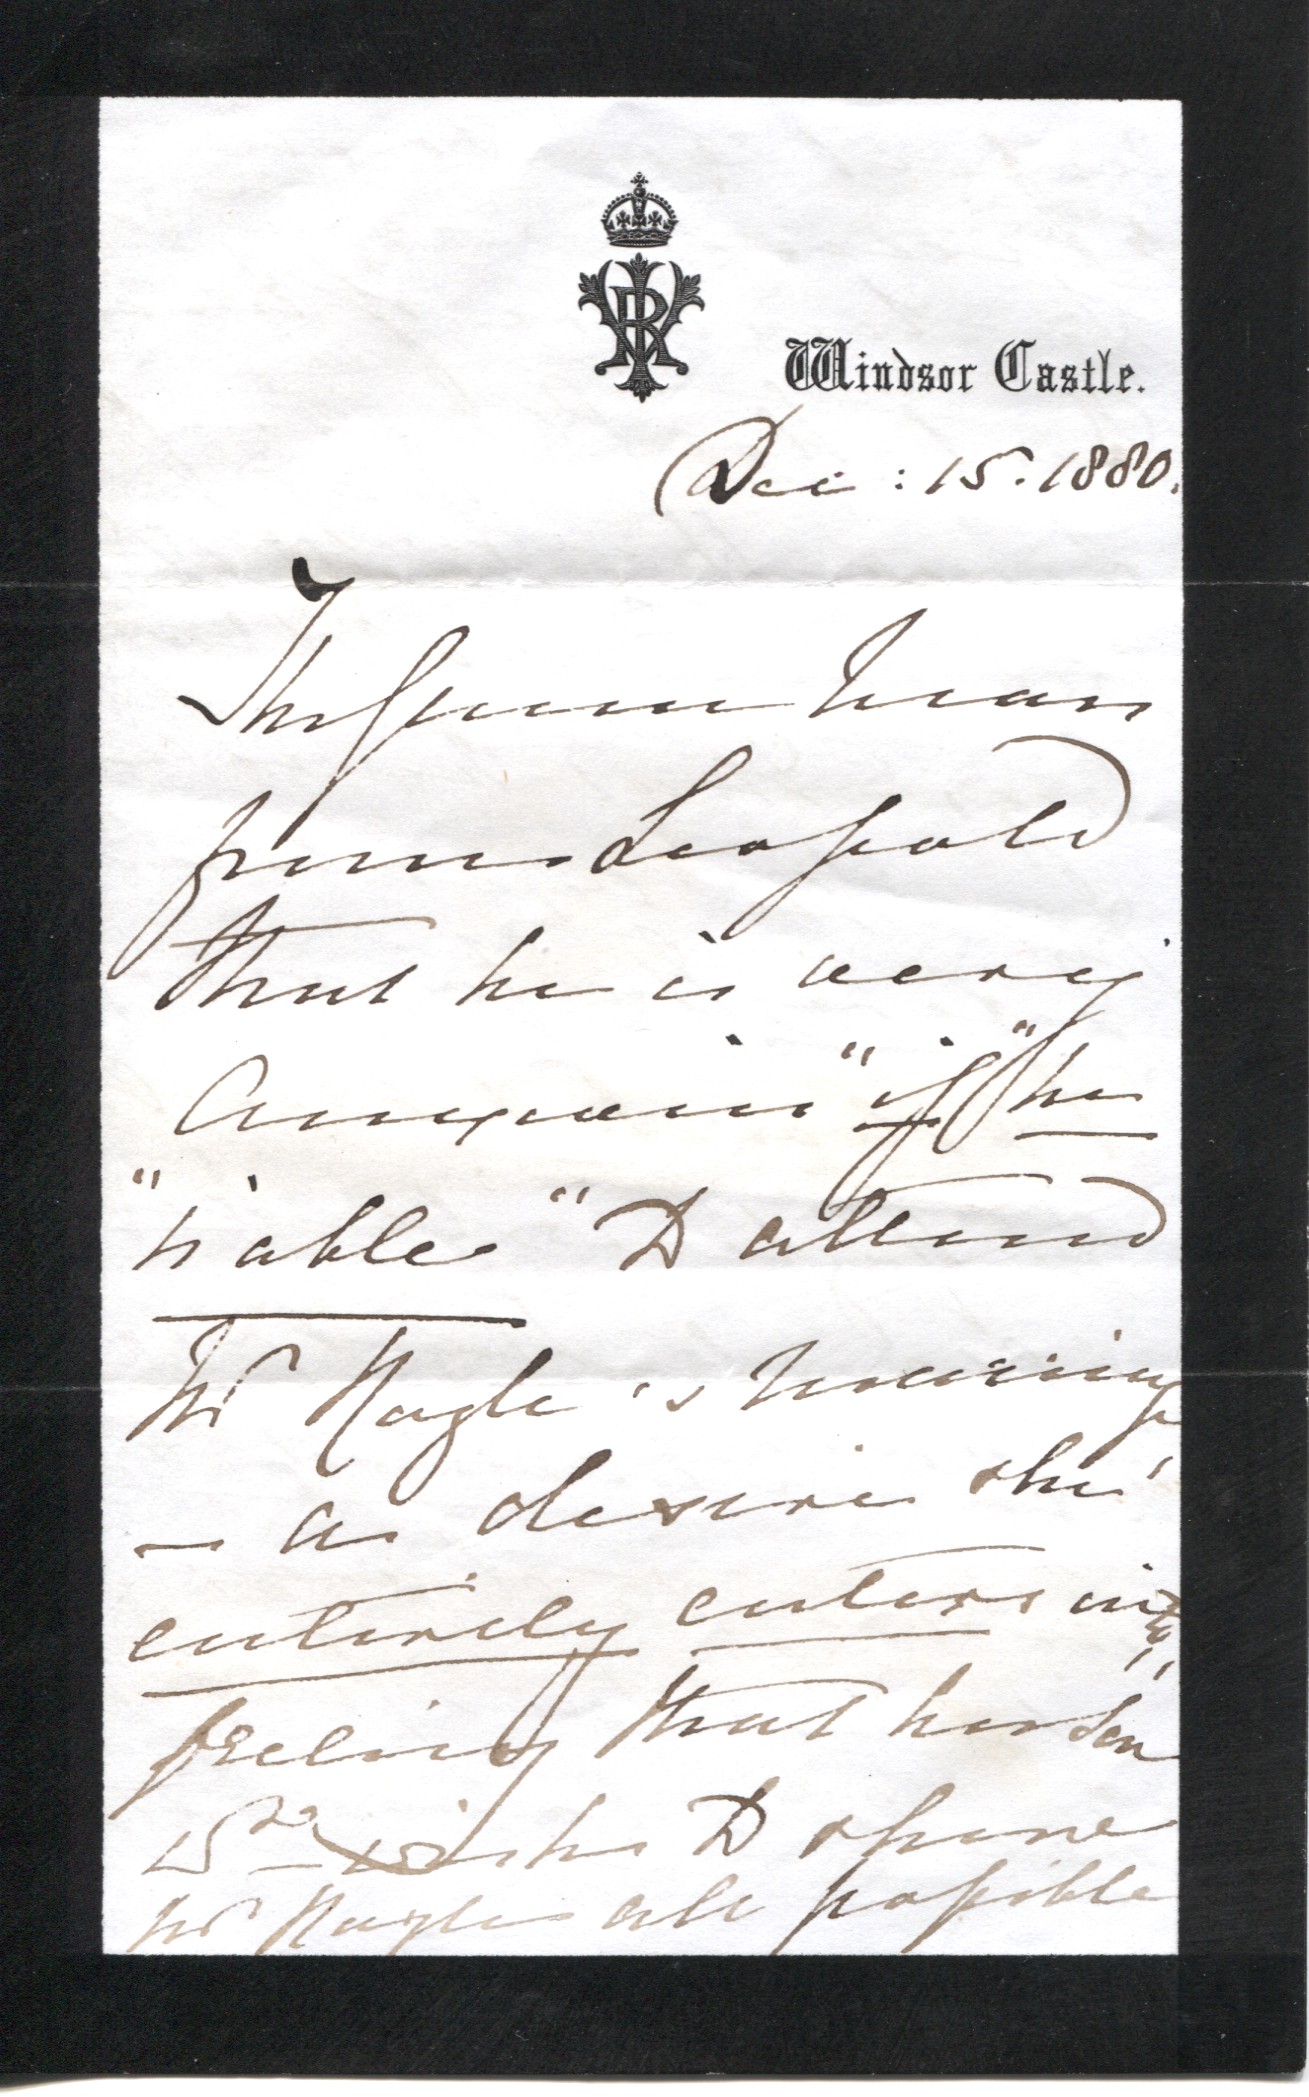 VRI
Windsor Castle.
Dec: 15. 1880.
The Queen hears
from Leopold
that he is very
anxious "if" he
"is able" to attend
Mr Nagle's
– a desire she
entirely enters into
feeling that her Son
wish to shew
Mr Nagle all possible